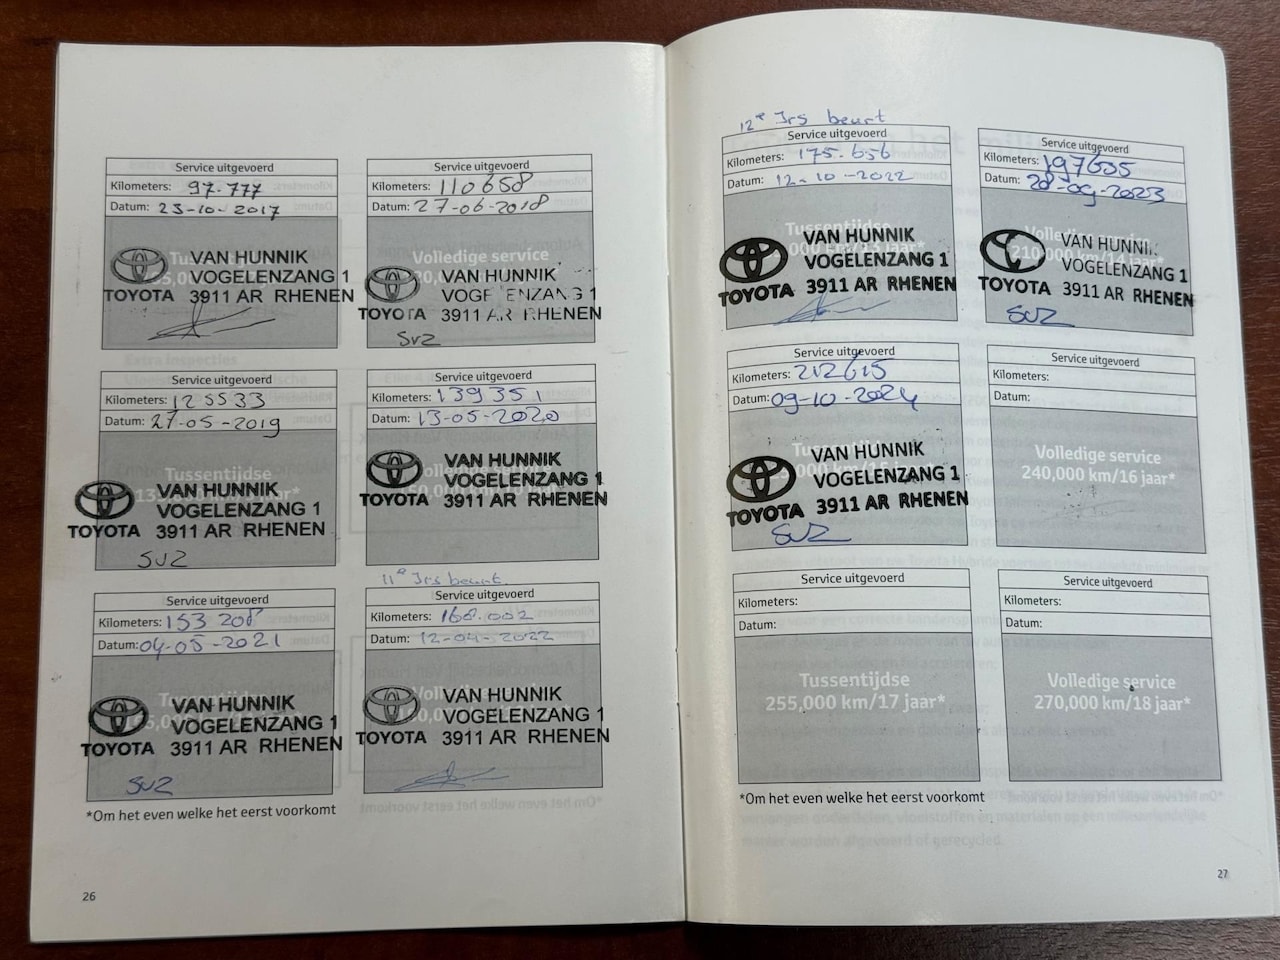 Service uitgevoerd
Kilometers: 97.777
Datum: 23-10-2017
TOYOTA
VAN HUNNIK
VOGELENZANG 1
3911 AR RHENEN
Service uitgevoerd
Kilometers: 110658
Datum: 27-06-2018
Volledige service
TOYOTA
VAN HUNNIK
VOGELENZANG 1
3911 AR RHENEN
SVZ
Service uitgevoerd
Kilometers: 125533
Datum: 27-05-2019
Tussentijdse
TOYOTA
VAN HUNNIK
VOGELENZANG 1
3911 AR RHENEN
SVZ
Service uitgevoerd
Kilometers: 139351
Datum: 13-05-2020
Volledige service
TOYOTA
VAN HUNNIK
VOGELENZANG 1
3911 AR RHENEN
Service uitgevoerd
Kilometers: 153 208
Datum: 04-05-2021
Tussentijdse
TOYOTA
VAN HUNNIK
VOGELENZANG 1
3911 AR RHENEN
SVZ
11e Jrs beurt
Service uitgevoerd
Kilometers: 168.002
Datum: 12-04-2022
Volledige service
TOYOTA
VAN HUNNIK
VOGELENZANG 1
3911 AR RHENEN
*Om het even welke het eerst voorkomt
26
12e Jrs beurt
Service uitgevoerd
Kilometers: 175.656
Datum: 12-10-2022
Tussentijdse
TOYOTA
VAN HUNNIK
VOGELENZANG 1
3911 AR RHENEN
Service uitgevoerd
Kilometers: 197635
Datum: 28-09-2023
Volledige service
210,000 km/14 jaar*
TOYOTA
VAN HUNNIK
VOGELENZANG 1
3911 AR RHENEN
SVZ
Service uitgevoerd
Kilometers: 212615
Datum: 09-10-2024
TOYOTA
VAN HUNNIK
VOGELENZANG 1
3911 AR RHENEN
SVZ
Service uitgevoerd
Kilometers:
Datum:
Volledige service
240,000 km/16 jaar*
Service uitgevoerd
Kilometers:
Datum:
Tussentijdse
255,000 km/17 jaar*
Service uitgevoerd
Kilometers:
Datum:
Volledige service
270,000 km/18 jaar*
*Om het even welke het eerst voorkomt
27